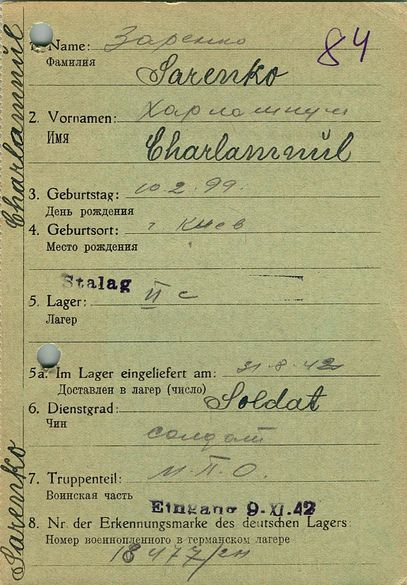 1. Name: Заренко
Фамилия
84
Sarenko
2. Vornamen:
Имя
Charlamnül
3. Geburtstag: 10.2.99.
День рождения
4. Geburtsort: г Киев
Место рождения
Stalag
5. Lager: II c
Лагер
5a. Im Lager eingeliefert am: 31-8-42
Доставлен в лагер (число)
6. Dienstgrad: Soldat
Чин
солдат
7. Truppenteil: М.П.О.
Воинская часть
Eingang 9-XI.42
8. Nr. der Erkennungsmarke des deutschen Lagers:
Номер военнопленного в германском лагере
18477
Sarenko Charlamnül